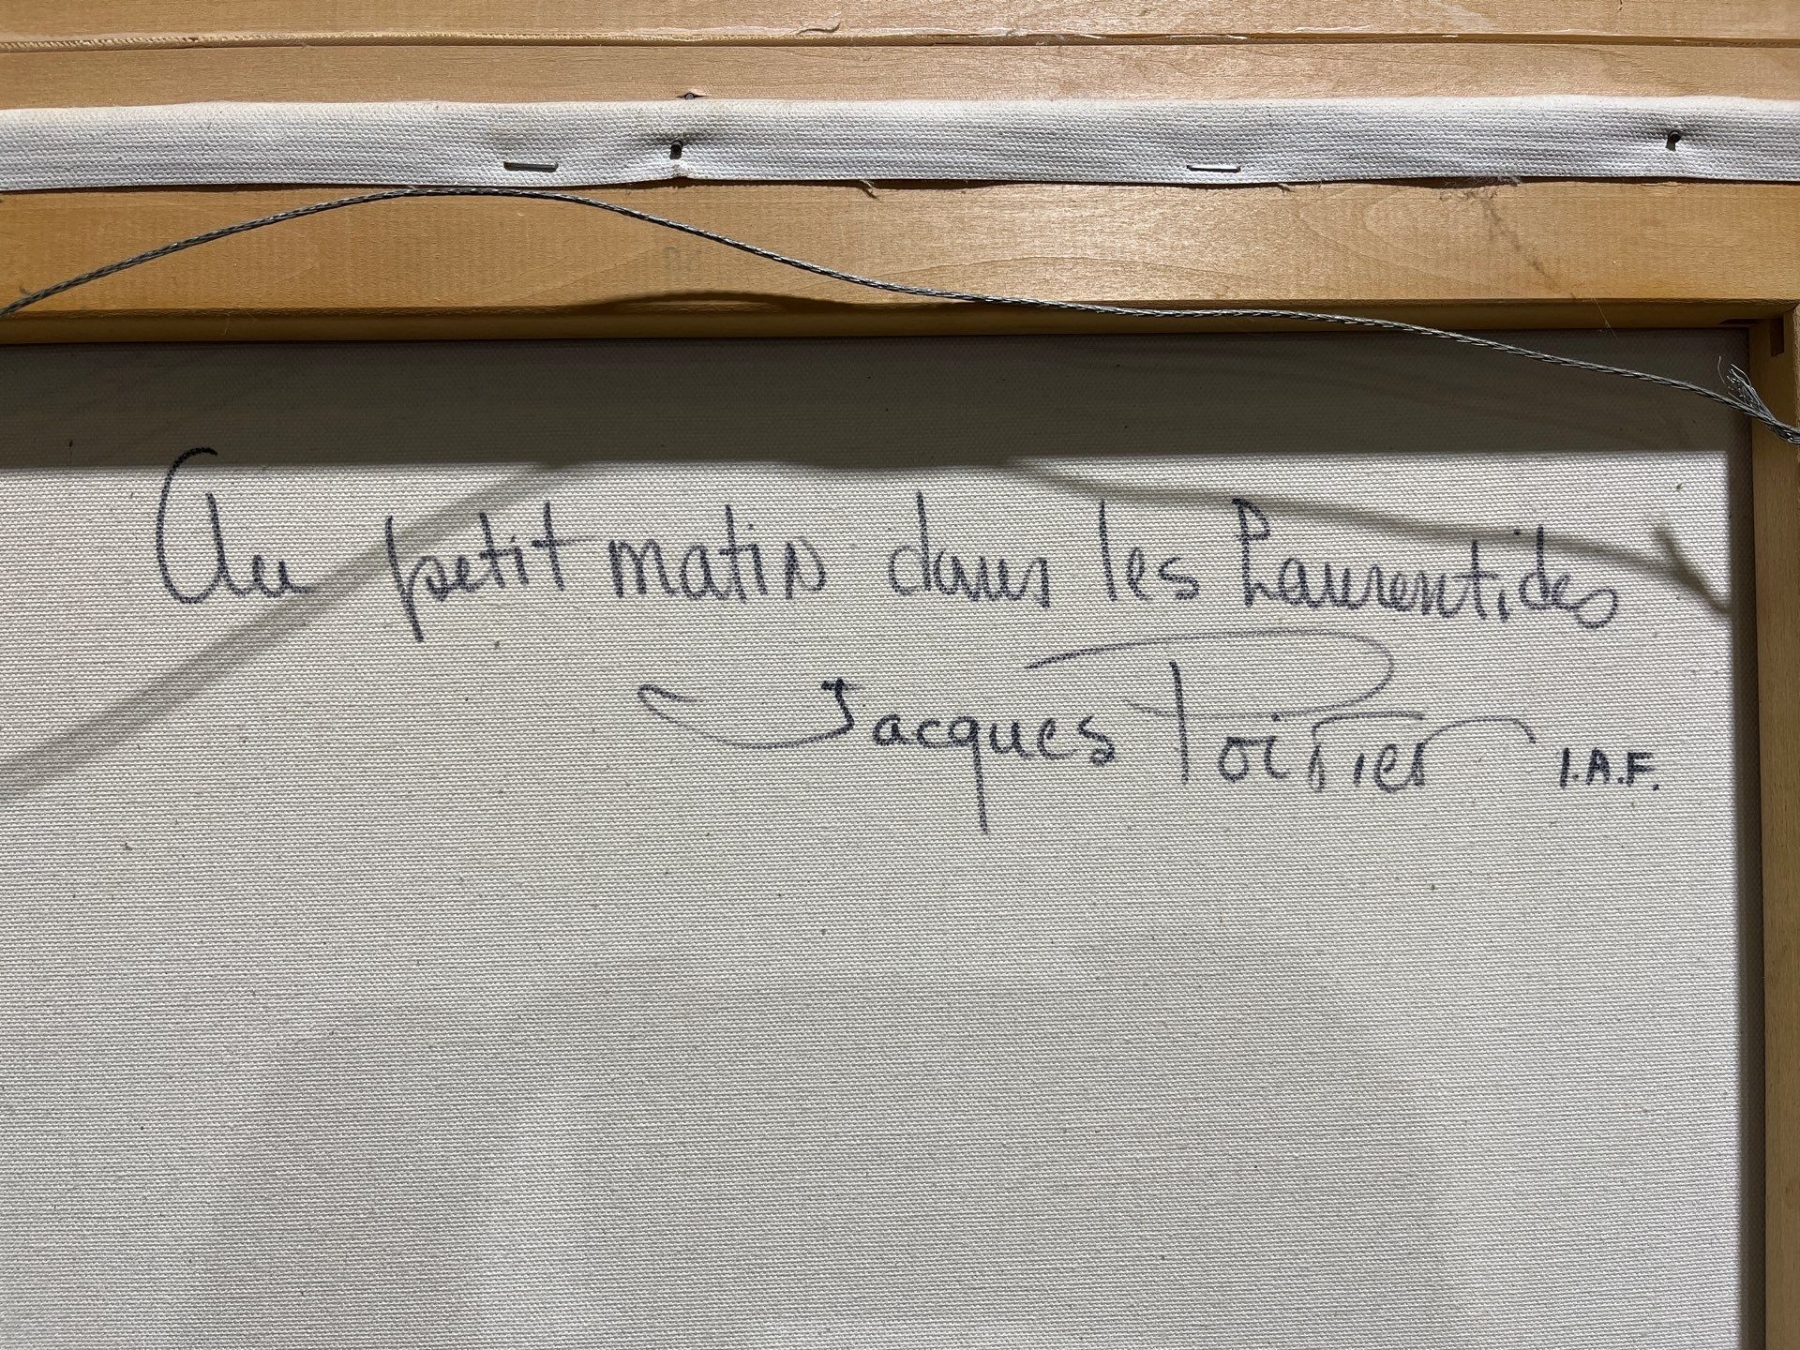 Au petit matin dans les Laurentides
Jacques Poirier I.A.F.